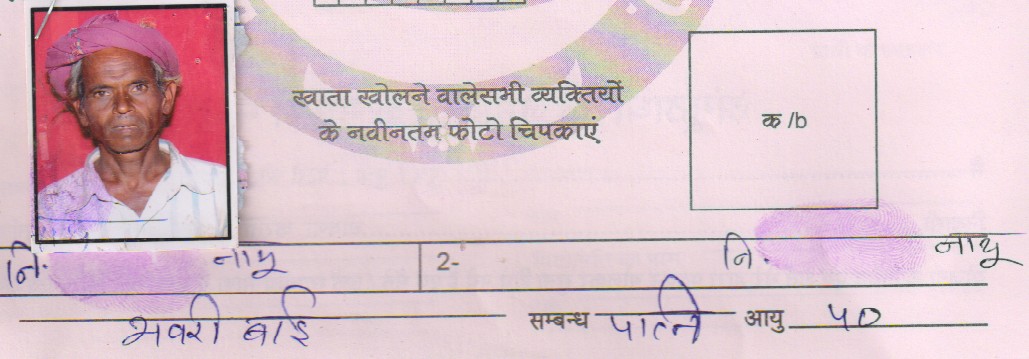 खाता खोलने वालेसभी व्यक्तियों
के नवीनतम फोटो चिपकाएं
क /b
नि. नाथू 2- नि. नाथू
भवरी बाई सम्बन्ध पत्नि आयु 50